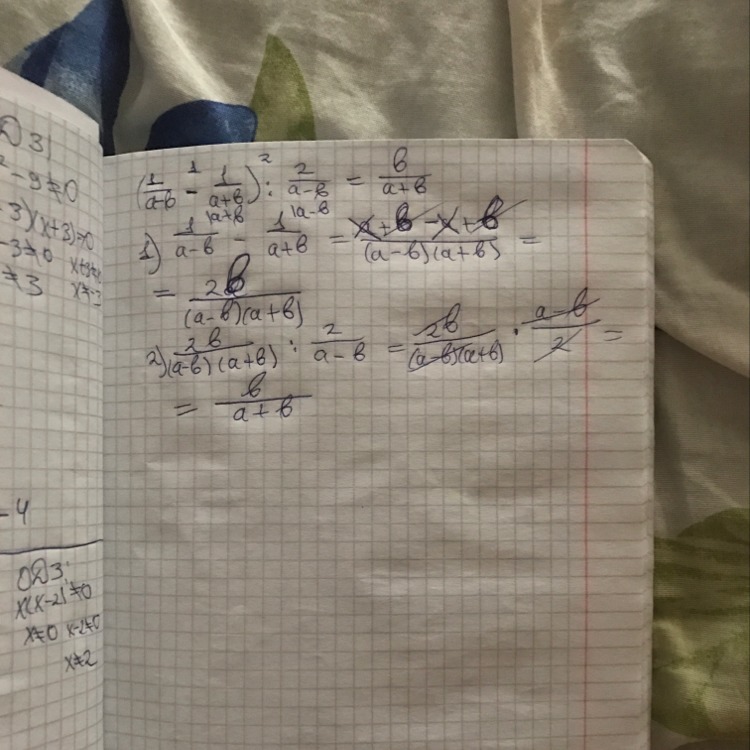 ОДЗ
² - 9 ≠ 0
- 3)(x + 3) ≠ 0
- 3 ≠ 0
≠ 3 x ≠ -3
- 4
ОДЗ:
x(x - 2) ≠ 0
x ≠ 0 x - 2 ≠ 0
x ≠ 2
(1/(a-b) -¹ 1/(a+b)) :² 2/(a-b) = b/(a+b)
1) 1/(a-b) |a+b - 1/(a+b) |a-b = (a + b - a + b)/((a-b)(a+b)) =
= 2b/((a-b)(a+b))
2) 2b/((a-b)(a+b)) : 2/(a-b) = 2b/((a-b)(a+b)) · (a-b)/2 =
= b/(a+b)